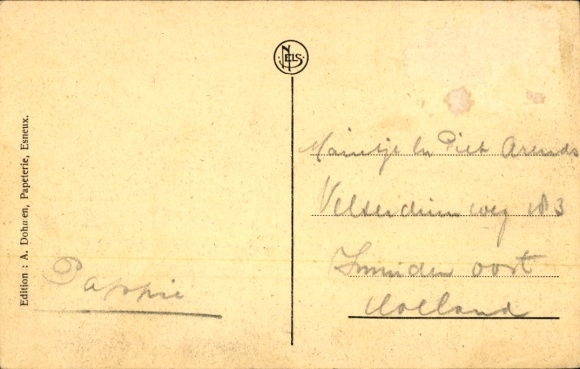 NELS
Edition : A. Dohmen, Papeterie, Esneux.
Maintje en Piet Arends
Velserduinweg 183
IJmuiden oost
Holland
Pappie